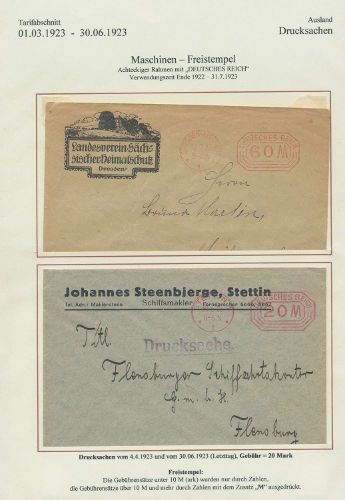 Tarifabschnitt
01.03.1923 - 30.06.1923
Ausland
Drucksachen
Maschinen – Freistempel
Achteckiger Rahmen mit „DEUTSCHES REICH“
Verwendungszeit Ende 1922 – 31.7.1923
Landesverein Sächs-
sischer Heimatschutz
Dresden
DEUTSCHES REICH
60 M
Herrn
Bruno
Johannes Steenbjerge, Stettin
Schiffsmakler
Tel.-Adr.: Maklerstein
Fernsprecher
DEUTSCHES REICH
20 M
Drucksache.
Titl.
Flensburger Schiffahrtskontor
G. m. b. H.
Flensburg
Drucksachen vom 4.4.1923 und vom 30.06.1923 (Letzttag), Gebühr = 20 Mark
Freistempel:
Die Gebührsätze unter 10 M (ark) wurden nur durch Zahlen,
die Gebührensätze über 10 M und mehr durch Zahlen mit dem Zusatz „M“ eingedrückt.